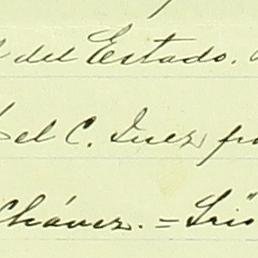 del Estado.
el C. Juez
Chávez. = Srio